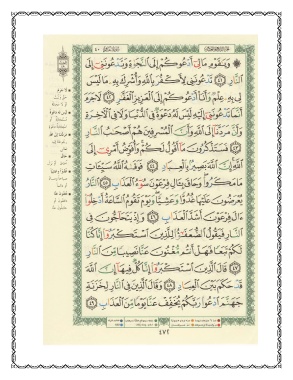 وَيَٰقَوْمِ مَا لِىٓ أَدْعُوكُمْ إِلَى ٱلنَّجَوٰةِ وَتَدْعُونَنِىٓ إِلَى
ٱلنَّارِ ٤١ تَدْعُونَنِى لِأَكْفُرَ بِٱللَّهِ وَأُشْرِكَ بِهِۦ مَا لَيْسَ
لِى بِهِۦ عِلْمٌ وَأَنَا۠ أَدْعُوكُمْ إِلَى ٱلْعَزِيزِ ٱلْغَفَّٰرِ ٤٢ لَا جَرَمَ
أَنَّمَا تَدْعُونَنِىٓ إِلَيْهِ لَيْسَ لَهُۥ دَعْوَةٌ فِى ٱلدُّنْيَا وَلَا فِى ٱلْءَاخِرَةِ
وَأَنَّ مَرَدَّنَآ إِلَى ٱللَّهِ وَأَنَّ ٱلْمُسْرِفِينَ هُمْ أَصْحَٰبُ ٱلنَّارِ
٤٣ فَسَتَذْكُرُونَ مَآ أَقُولُ لَكُمْ وَأُفَوِّضُ أَمْرِىٓ إِلَى
ٱللَّهِ إِنَّ ٱللَّهَ بَصِيرٌۢ بِٱلْعِبَادِ ٤٤ فَوَقَىٰهُ ٱللَّهُ سَيِّـَٔاتِ
مَا مَكَرُوا۟ وَحَاقَ بِـَٔالِ فِرْعَوْنَ سُوٓءُ ٱلْعَذَابِ ٤٥ ٱلنَّارُ
يُعْرَضُونَ عَلَيْهَا غُدُوًّا وَعَشِيًّا وَيَوْمَ تَقُومُ ٱلسَّاعَةُ أَدْخِلُوٓا۟
ءَالَ فِرْعَوْنَ أَشَدَّ ٱلْعَذَابِ ٤٦ وَإِذْ يَتَحَآجُّونَ فِى
ٱلنَّارِ فَيَقُولُ ٱلضُّعَفَٰٓؤُا۟ لِلَّذِينَ ٱسْتَكْبَرُوٓا۟ إِنَّا كُنَّا
لَكُمْ تَبَعًا فَهَلْ أَنتُم مُّغْنُونَ عَنَّا نَصِيبًا مِّنَ ٱلنَّارِ
٤٧ قَالَ ٱلَّذِينَ ٱسْتَكْبَرُوٓا۟ إِنَّا كُلٌّ فِيهَآ إِنَّ ٱللَّهَ
قَدْ حَكَمَ بَيْنَ ٱلْعِبَادِ ٤٨ وَقَالَ ٱلَّذِينَ فِى ٱلنَّارِ لِخَزَنَةِ
جَهَنَّمَ ٱدْعُوا۟ رَبَّكُمْ يُخَفِّفْ عَنَّا يَوْمًا مِّنَ ٱلْعَذَابِ ٤٩
٤٧٢